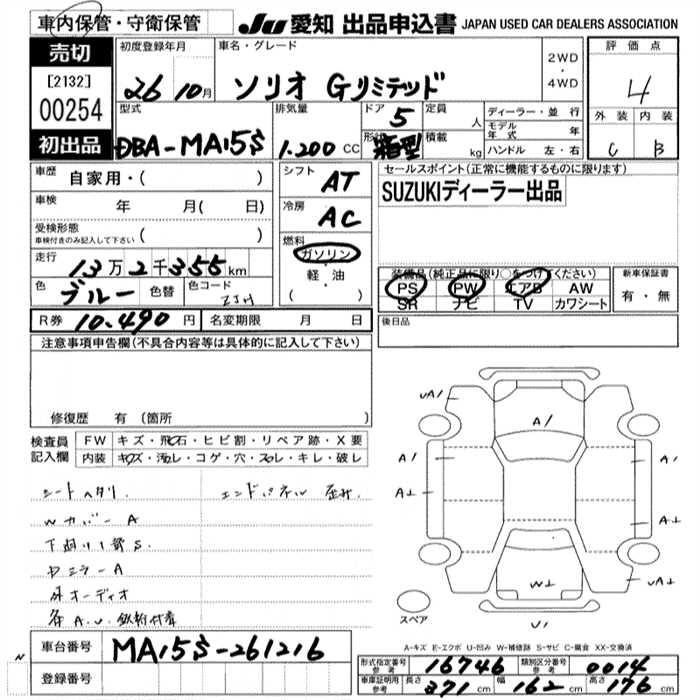 車内保管・守衛保管
JU 愛知 出品申込書 JAPAN USED CAR DEALERS ASSOCIATION
売切
[2132]
00254
初出品
初度登録年月
26 10月
車名・グレード
ソリオ Gリミテッド
2WD
・
4WD
評価点
4
外装 内装
C B
型式
DBA-MA15S
排気量
1.200 CC
ドア 5
形状 箱型
定員 人
積載 kg
ディーラー・並行
モデル年式 年
ハンドル 左・右
車歴 自家用・( )
車検 年 月( 日)
受検形態
車検付きのみ記入して下さい ( )
走行 13万2千355km
色 ブルー 色替 色コード ZJH
R券 10.490円 名変期限 月 日
シフト AT
冷房 AC
燃料
ガソリン
軽・油
( ・ )
セールスポイント(正常に機能するものに限ります)
SUZUKIディーラー出品
装備品(純正品に限り○をつけてください)
PS PW エアB AW
SR ナビ TV カワシート
新車保証書
有・無
後日品
注意事項申告欄(不具合内容等は具体的に記入して下さい)
修復歴 有(箇所 )
検査員記入欄
FW キズ・飛石・ヒビ割・リペア跡・X要
内装 キズ・汚レ・コゲ・穴・スレ・キレ・破レ
シートヘタリ エンドパネル
WカバーA
下廻り1部S.
DミラーA
社外オーディオ
各A.U.
UA1
A1
A1
A1
A1
W1
UA1
U1
スペア
A-キズ E-エクボ U-凹み W-補修跡 S-サビ C-腐食 XX-交換済
車台番号 MA15S-261216
登録番号
N
形式指定番号参考 16746 類別区分番号参考 0014
車庫証明用参考 長さ 371cm 幅 162cm 高さ 176cm